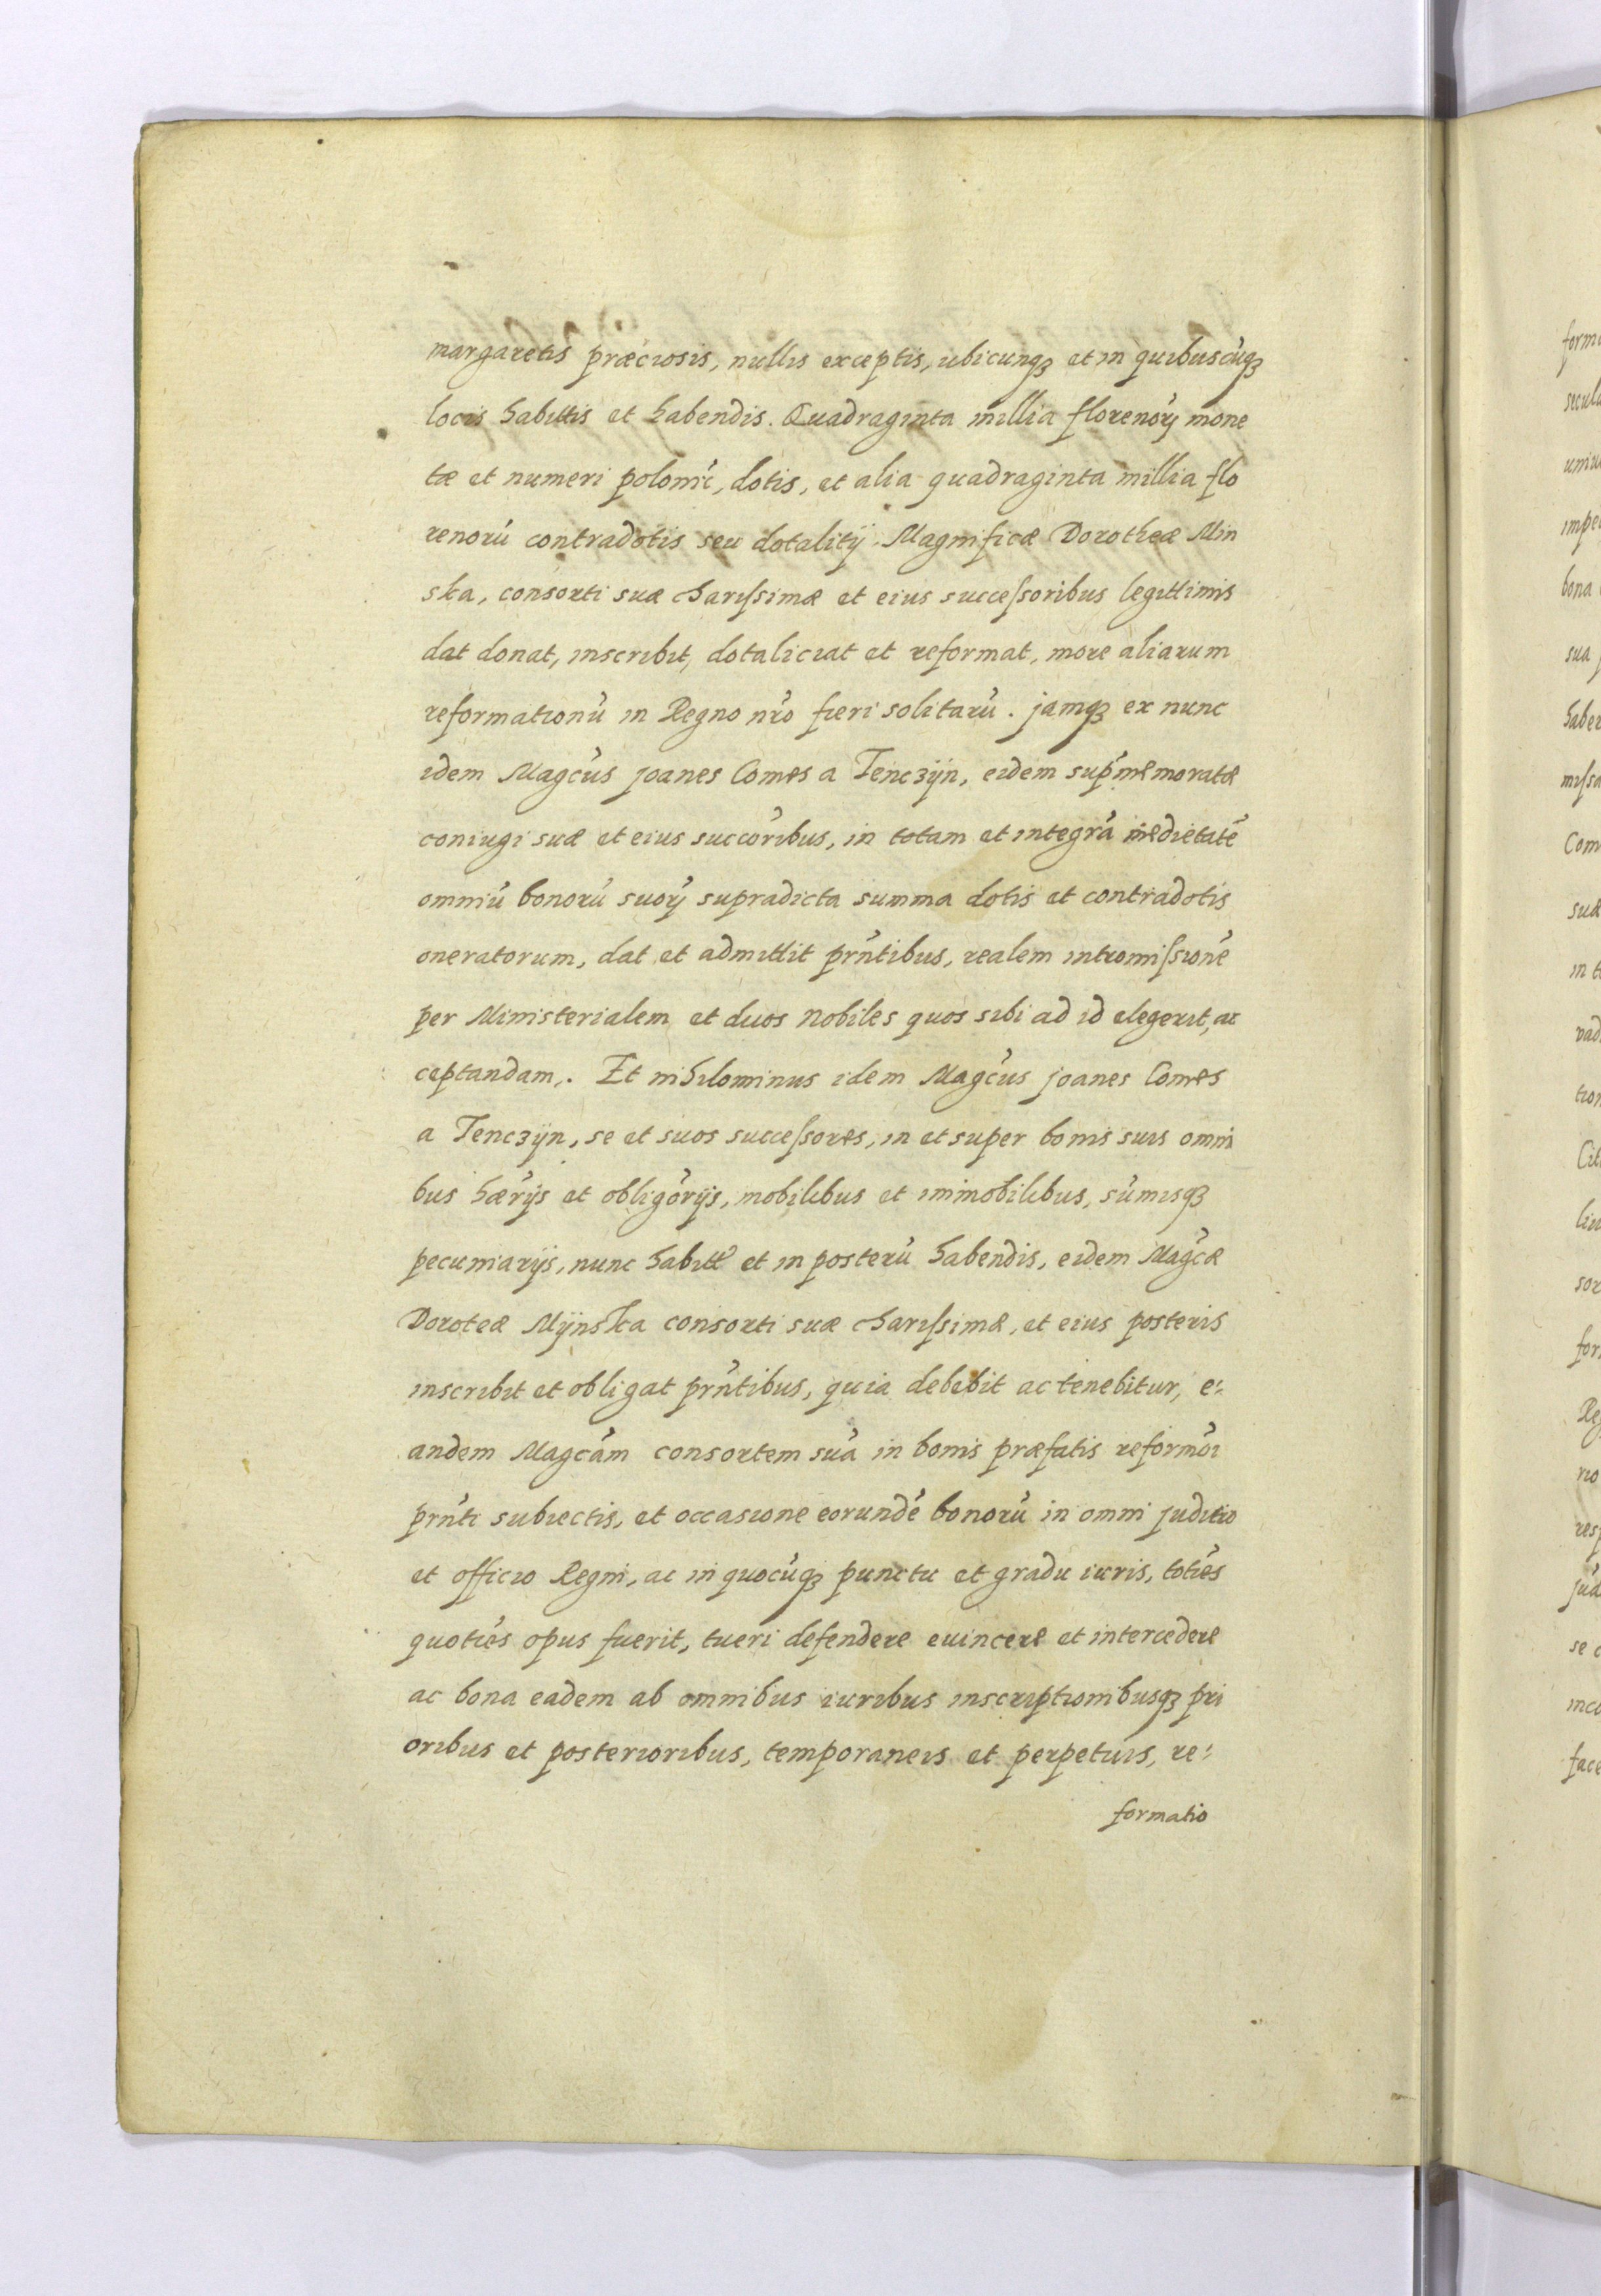 margaretis præciosis, nullis exceptis, ubicunqꝫ et in quibuscúqꝫ
locis habittis et habendis. Quadraginta millia florenorꝝ mone
tæ et numeri poloníc, dotis, et alia quadraginta millia flo
renorú contradotis seu dotalitÿ. Magnificæ Dorotheæ Min
ska, consorti suæ charissimæ et eius successoribus legittimis
dat donat, inscribit, dotaliciat et reformat, more aliarum
reformationú in Regno nró fieri solitarú. jamqꝫ ex nunc
idem Magcús joanes Comes a Tenczÿn, eidem supmémoratæ
coniugi suæ et eius succóribus, in totam et integrá medietaté
omniú bonorú suorꝝ supradicta summa dotis et contradotis
oneratorum, dat et admittit prńtibus, realem intromissioné
per Ministerialem et duos nobiles quos sibi ad id elegerit, ac
ceptandam,. Et nihilominus idem Magcús joanes Comes
a Tenczÿn, se et suos successores, in et super bonis suis omni
bus hærꝰijs et obligórijs, mobilibus et immobilibus, súmisqꝫ
pecuniarijs, nunc habitt et in posterú habendis, eidem Magcæ
Doroteæ Mÿnska consorti suæ charissimæ, et eius posteris
inscribit et obligat prńtibus, quia debebit ac tenebitur, e:
andem Magcám consortem suá in bonis præfatis reformói
prńti subiectis, et occasione eorundé bonorú in omni juditio
et officio Regni, ac in quocúqꝫ punctu et gradu iuris, totiés
quotiés opus fuerit, tueri defendere euincere et intercedere
ac bona eadem ab omnibus iuribus inscriptionibusqꝫ pri
oribus et posterioribus, temporaneis et perpetuis, re:
formatio